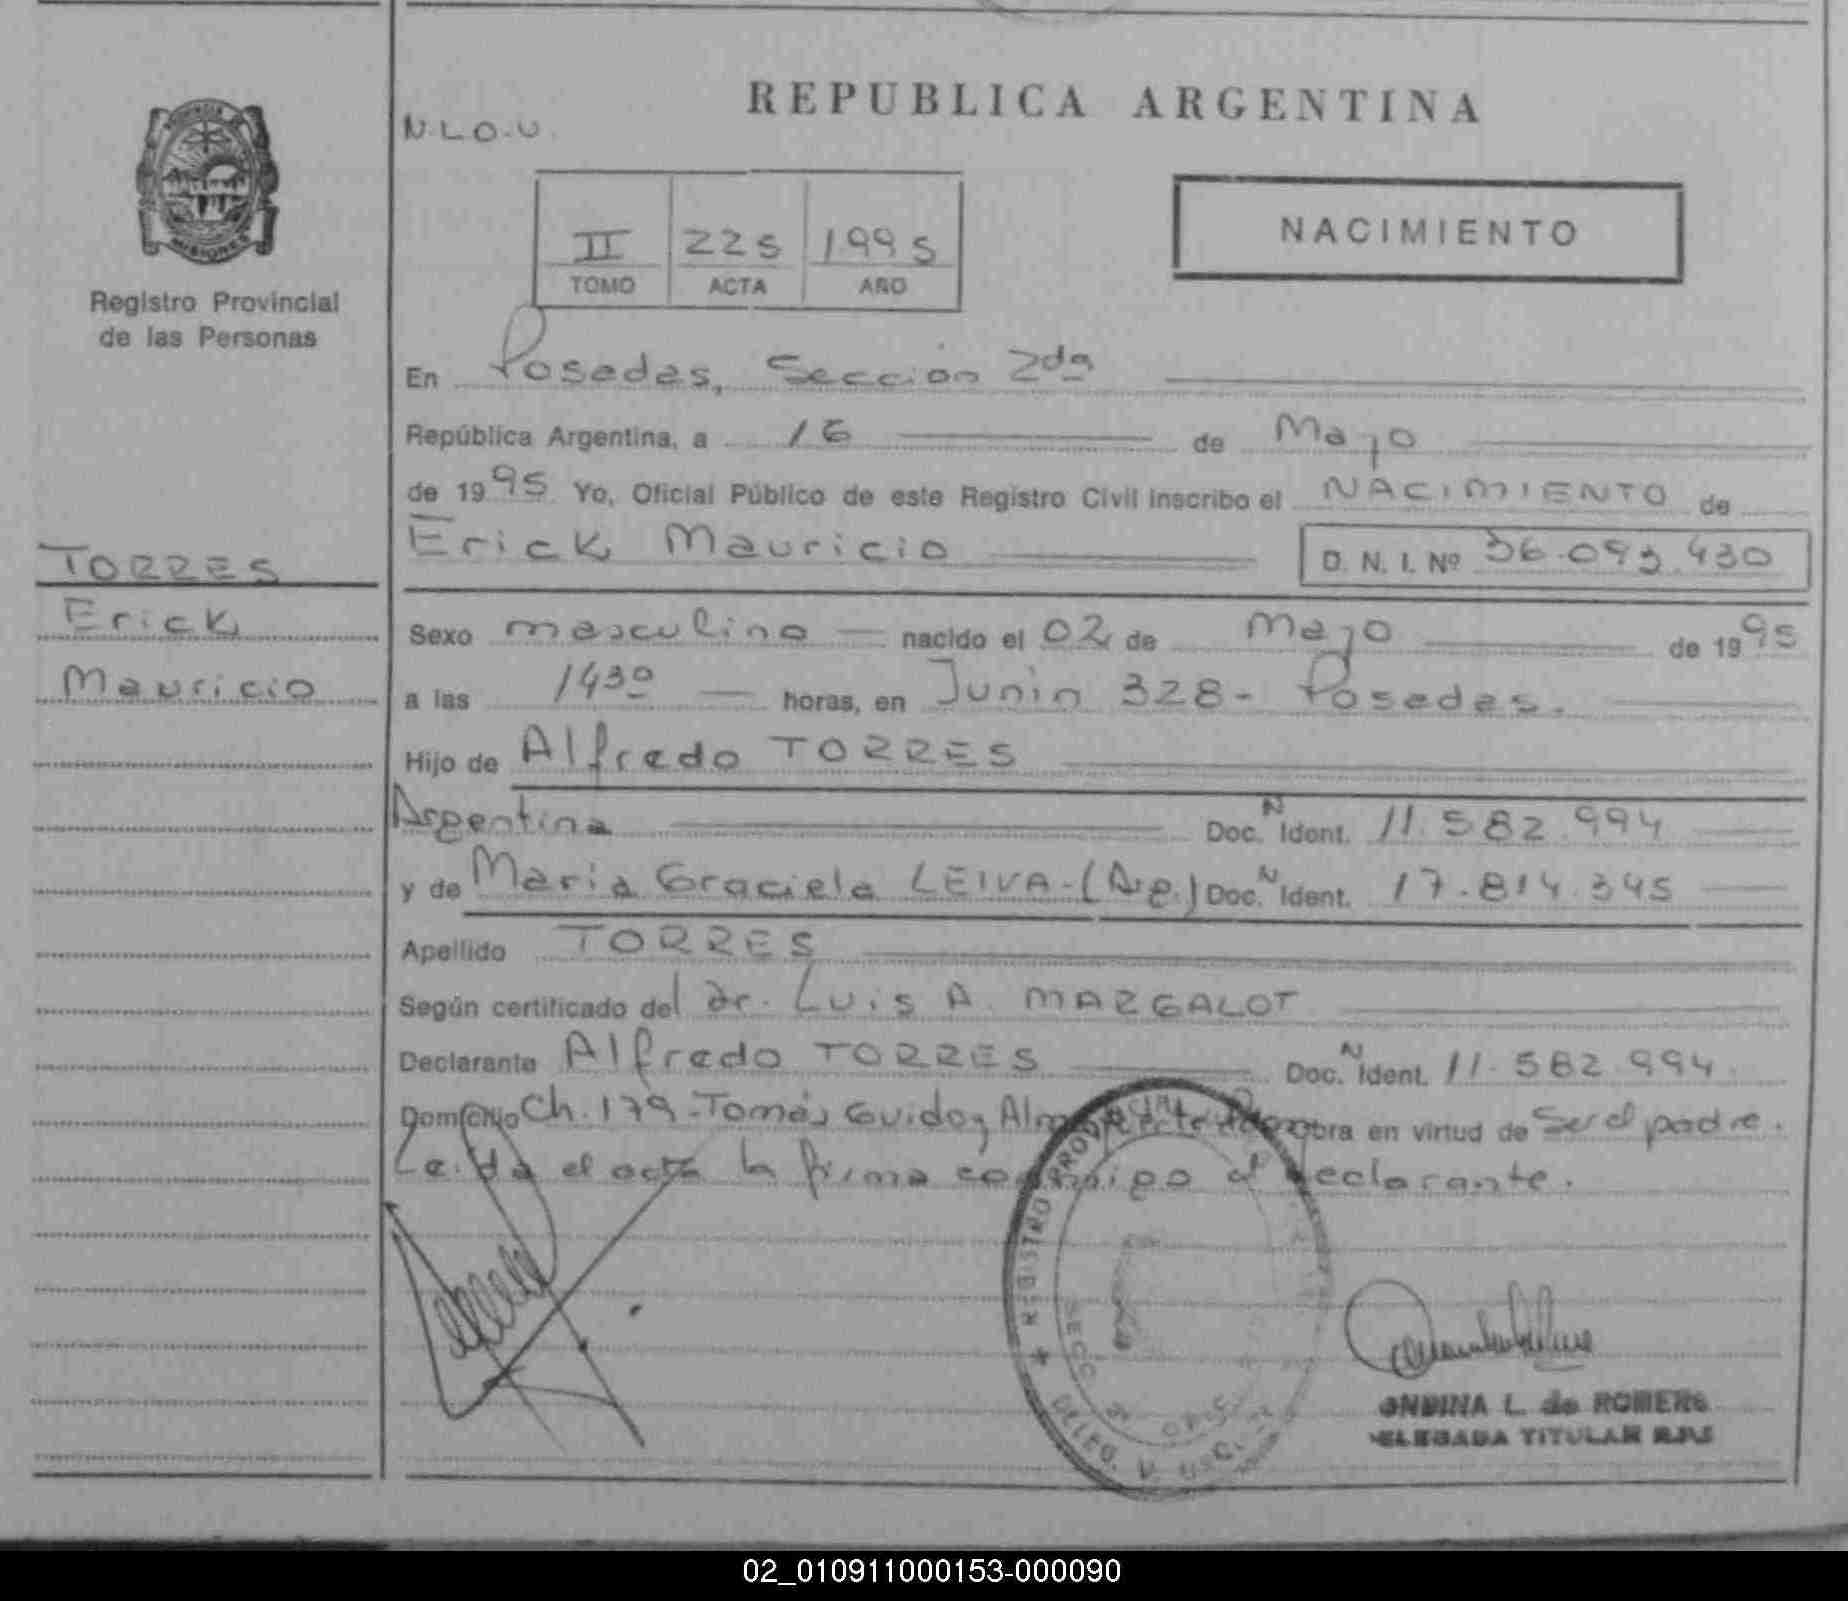 REPUBLICA ARGENTINA
N.L.O.U.
NACIMIENTO
II 225 1995
TOMO ACTA AÑO
MISIONES
Registro Provincial
de las Personas
En Posadas, Sección 2da
República Argentina, a 16 de Mayo
de 1995 Yo, Oficial Público de este Registro Civil inscribo el NACIMIENTO de
Erick Mauricio D. N. I. Nº 36.093.430
TORRES
Erick
Mauricio
Sexo masculino nacido el 02 de Mayo de 1995
a las 1430 horas, en Junin 328 - Posadas.
Hijo de Alfredo TORRES
Argentina Doc. N Ident. 11.582.994
y de Maria Graciela LEIVA - (Arg.) Doc. N Ident. 17.814.345
Apellido TORRES
Según certificado del dr. Luis A. MARGALOT
Declarante Alfredo TORRES Doc. N Ident. 11.582.994
Domicilio Ch. 179 - Tomás Guido y Alm obra en virtud de Ser el padre.
Leida el acta la firma conmigo el declarante.
REGISTRO PROVINCIAL
SECC
DELEG.
ONDINA L. de ROMERO
DELEGADA TITULAR R.P.S
02_010911000153-000090